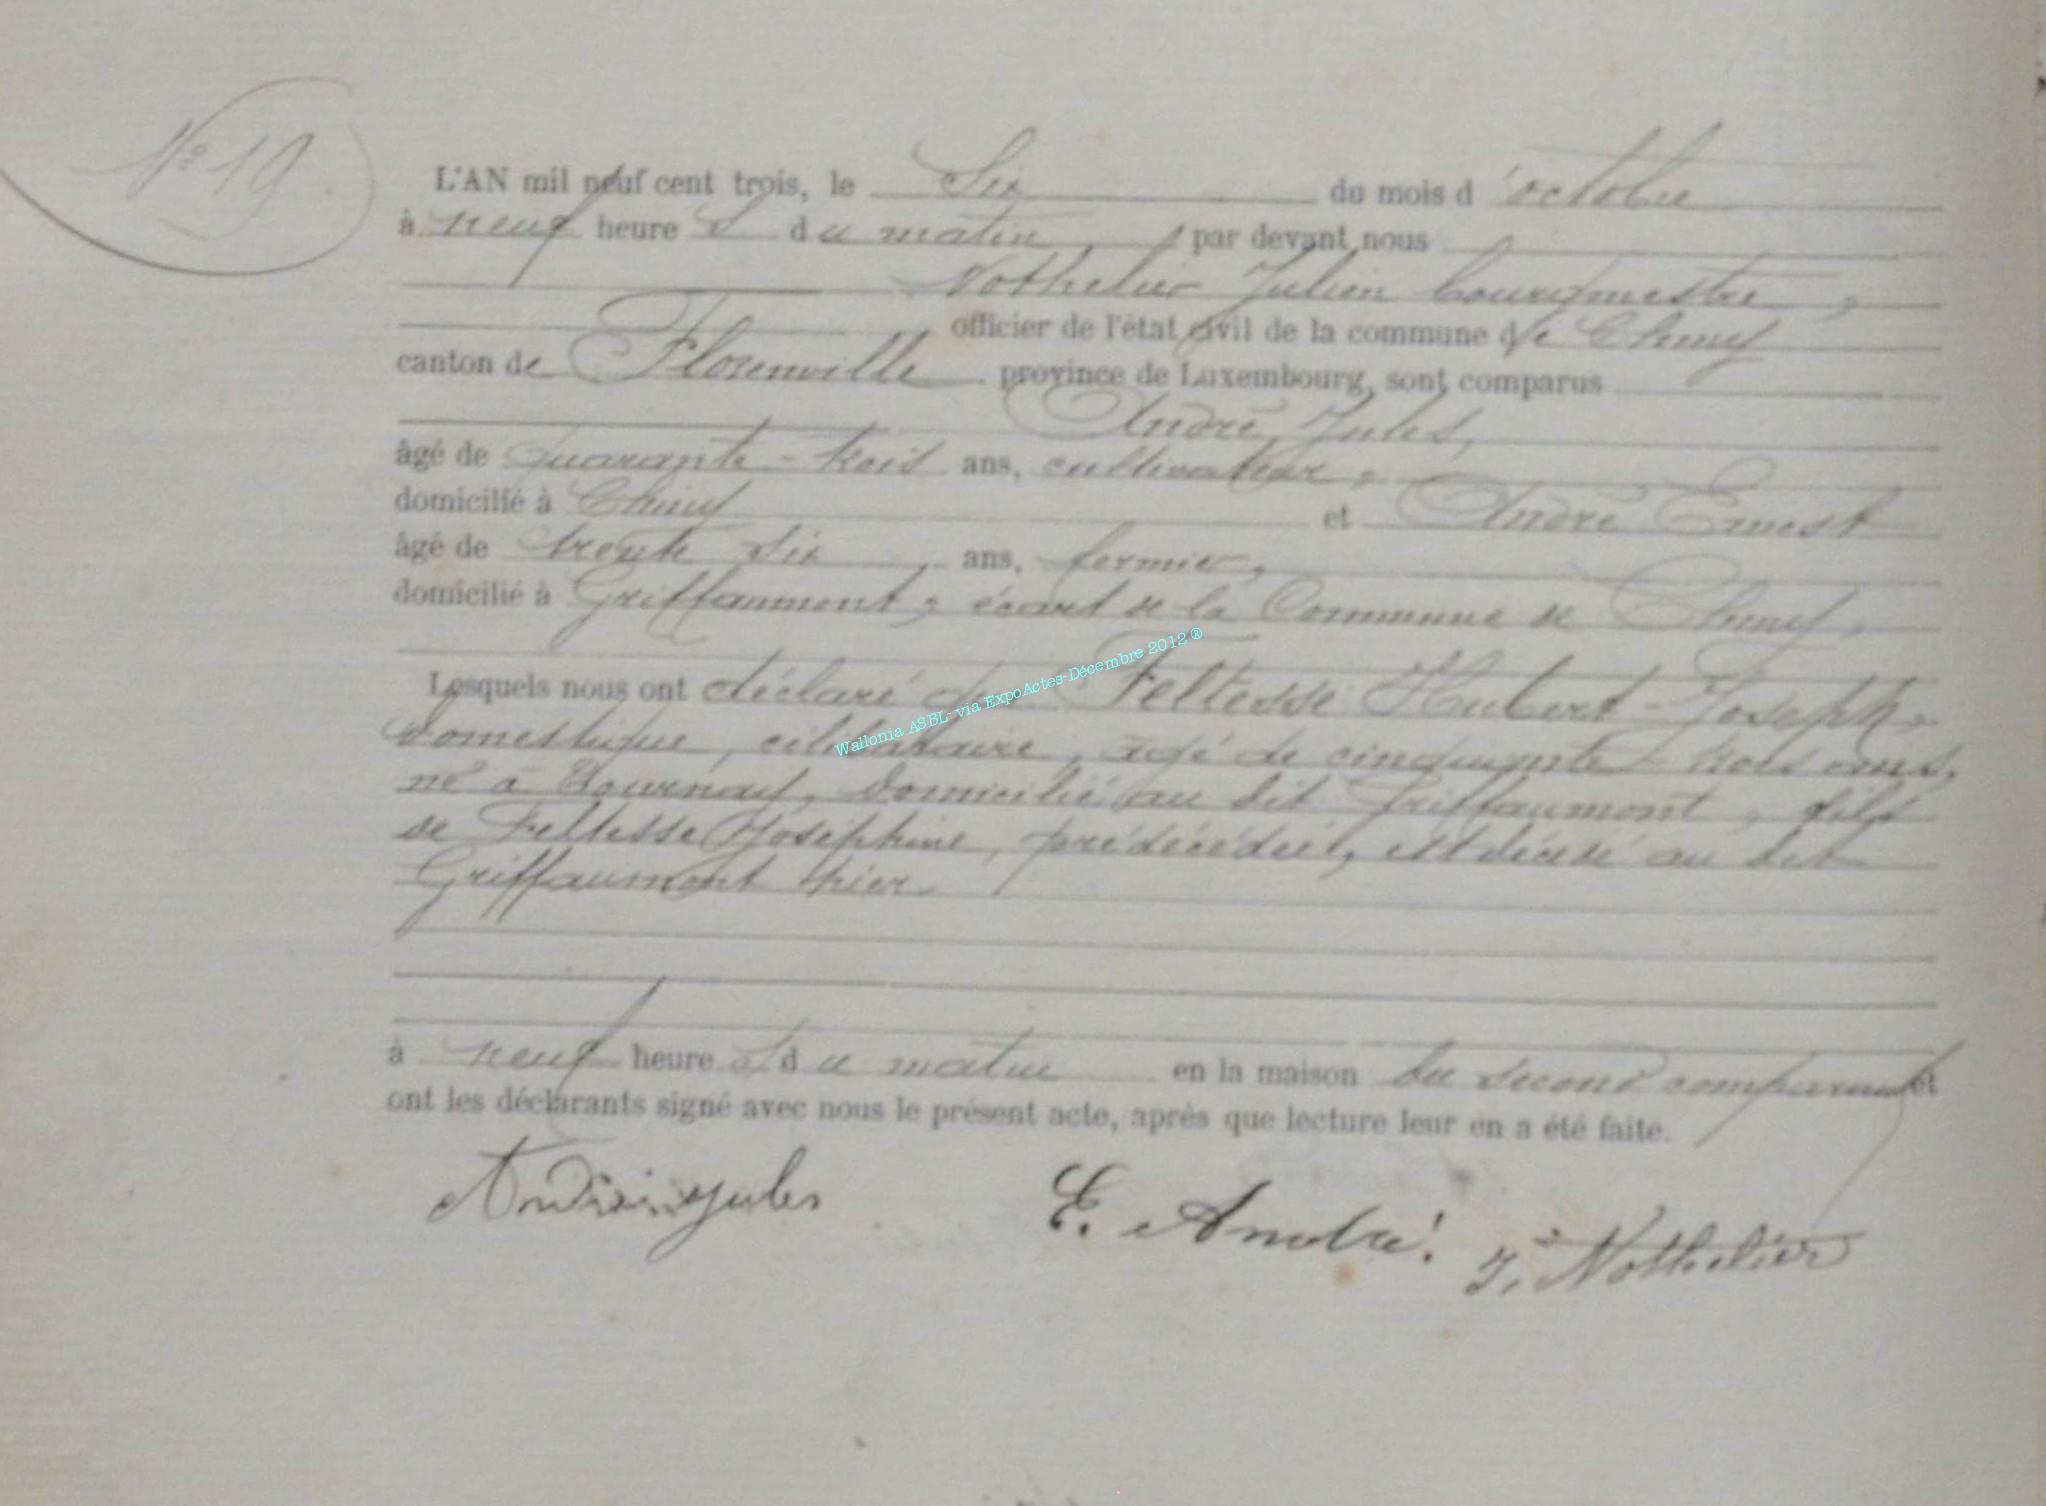 No 19.
L'AN mil neuf cent trois, le Six du mois d'octobre
à neuf heure s du matin, par devant nous
Nothelier Julien bourgmestre,
officier de l'état civil de la commune de Chiny
canton de Florenville province de Luxembourg, sont comparus
André Jules,
âgé de quarante-trois ans, cultivateur,
domicilié à Chiny et André Ernest
âgé de trente six ans, fermier,
domicilié à Griffaumont, écart de la Commune de Chiny,
Lesquels nous ont déclaré que Feltesse Hubert Joseph,
domestique, célibataire, âgé de cinquante-trois ans,
né à Tournay, domicilié au dit Griffaumont, fils
de Feltesse Joséphine, prédécédée, est décédé au dit
Griffaumont hier
à neuf heure s du matin en la maison du second comparant et
ont les déclarants signé avec nous le présent acte, après que lecture leur en a été faite.
André Jules
E. André
J. Nothelier
Wallonia ASBL- via ExpoActes-Décembre 2012 ®